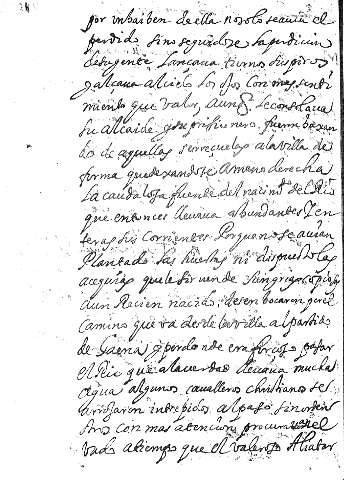 por un baiben de ella no solo se auia el
perdido sino seguidose la perdicion
de su gente lançaua tiernos suspiros
y alcaua al cielo los ojos con mas senti
miento que valor, aunq. le consolaua
su alcaide y de prisionero, fueron baxan
do de aquellas serreçuelas a la villa de
forma que dexandose a mano derecha
la caudalosa fuente del nacimto del Rio
que entonces lleuaua abundantes y en
teras sus corrientes Porque no se auian
Plantado las huertas ni dispuesto las
acequias que le siruen de
aun Recien nacido; desembocaron por el
camino que va desde la villa al partido
de Gaena y por donde era forçoso pasar
el Rio que a la uerdad lleuaua mucha
agua algunos caualleros christianos se
arrojaron intrepidos al paso sino
otros con mas atencion procurauan el
vado a tiempo que el valeroso Aliatar